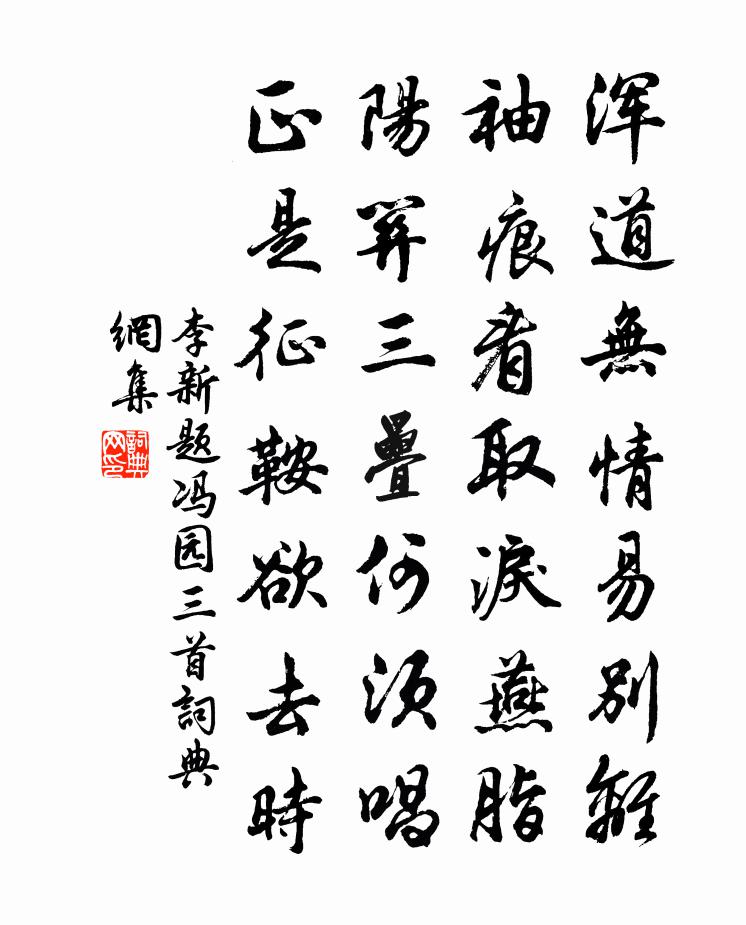 浑道無情易別離
袖痕看取淚燕脂
陽關三疊何須唱
正是征鞍欲去時
李新题冯园三首詞典
網集
詞典网印